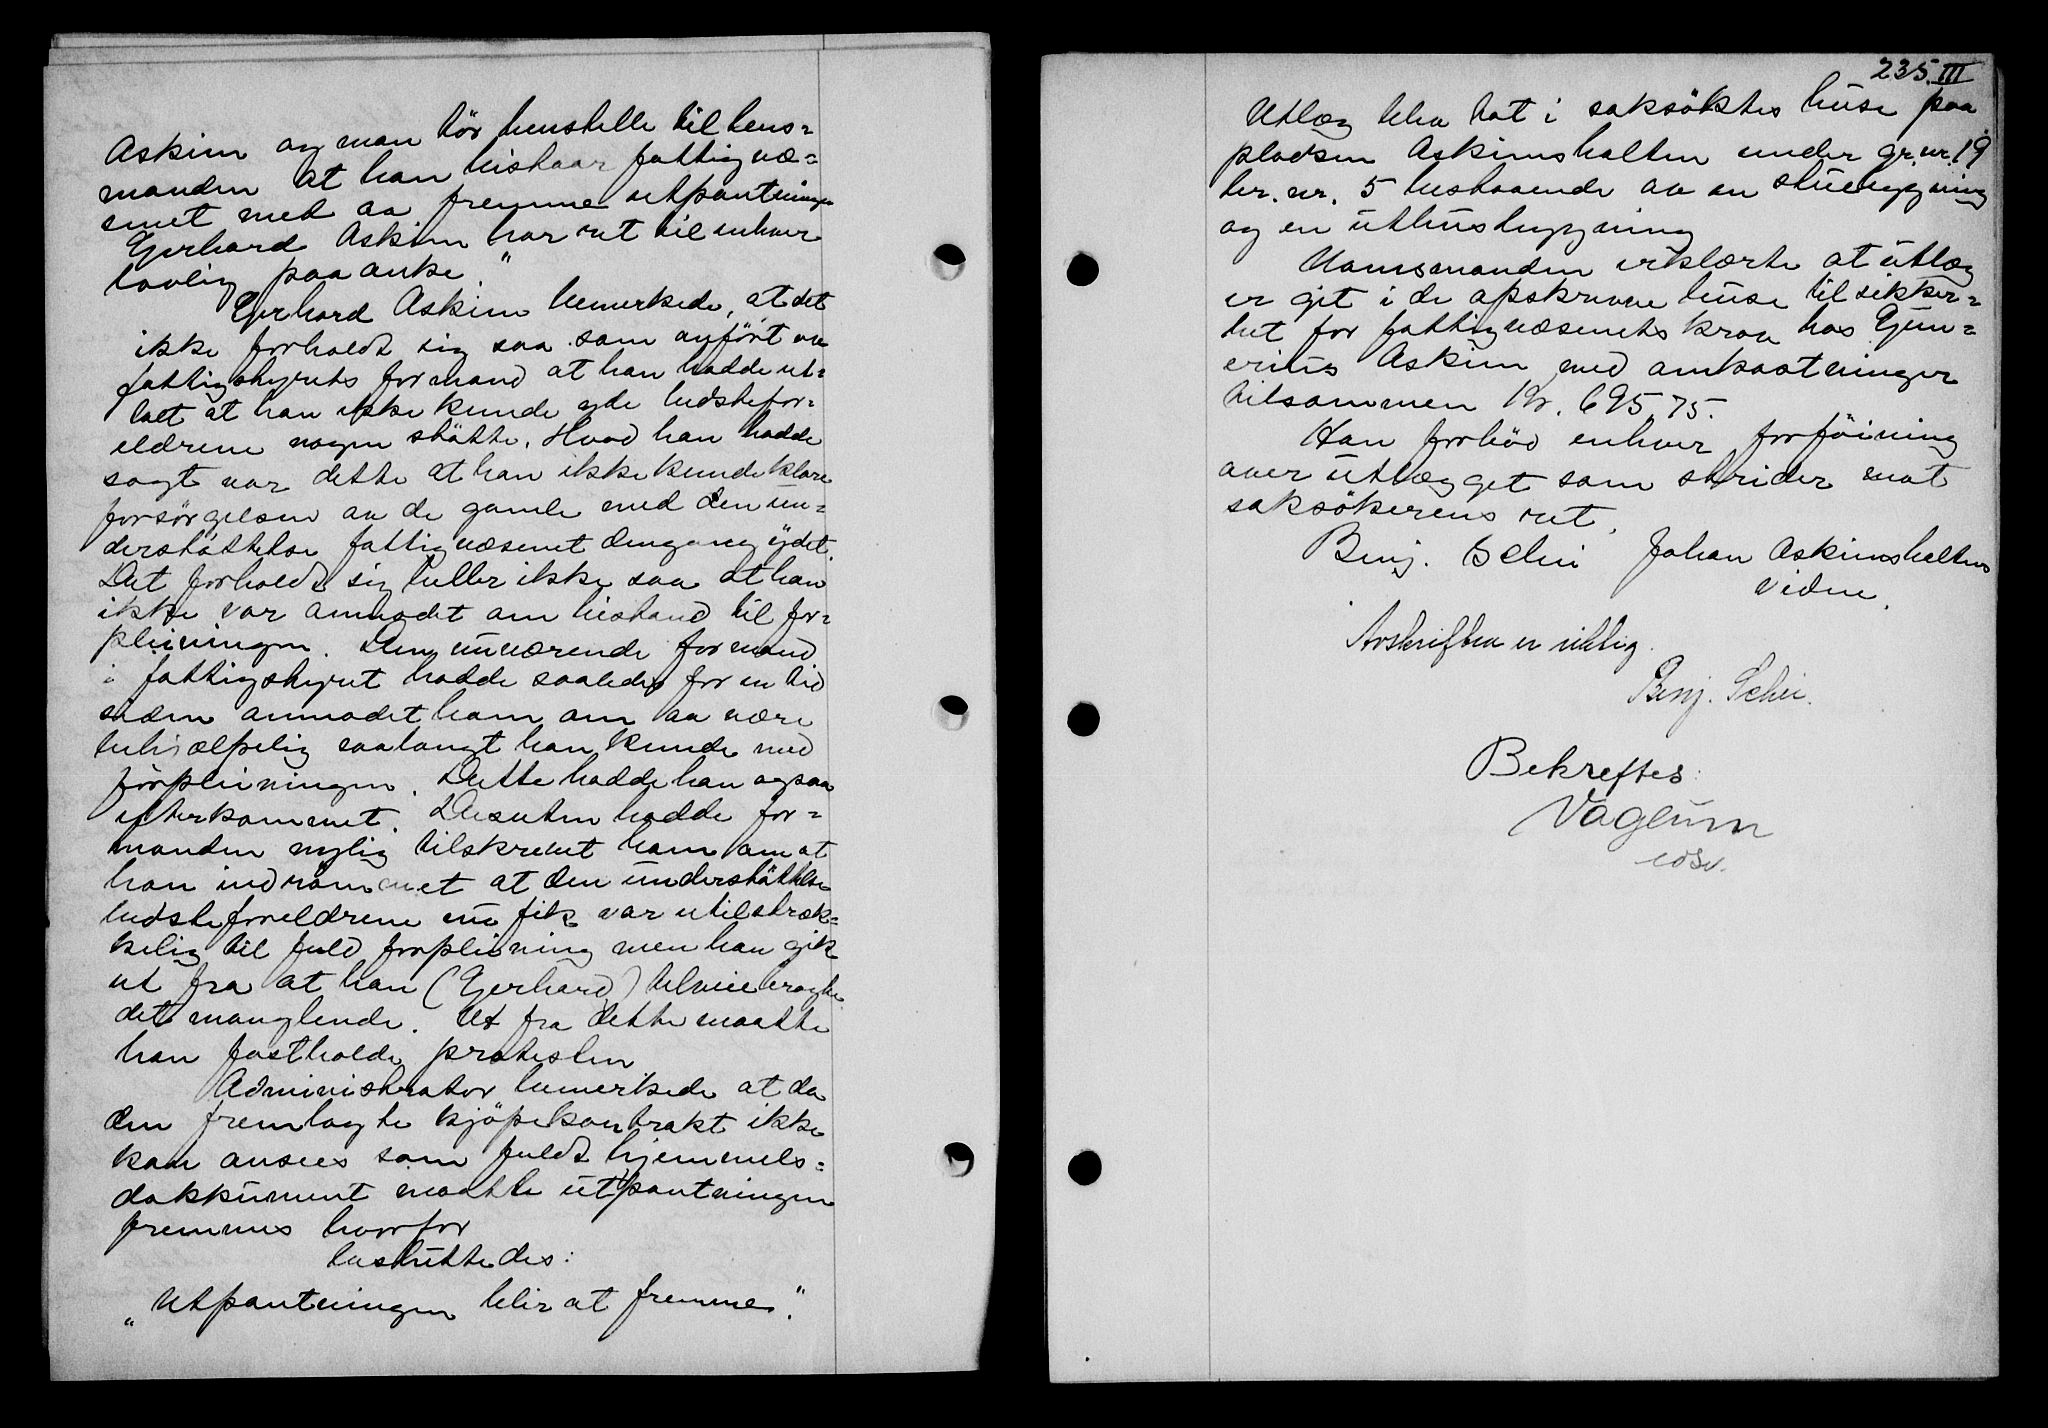 Askim og man bør henstille til lens=
manden at han bistaar fattigvæ=
snet med aa fremme utpantningen
Gerhard Askim har ret til enhver
lovlig paaanke."
Gerhard Askim bemerkede, at det
ikke forholdt sig saa som anført av
fattigstyrets formand at han hadde ut=
talt at han ikke kunde yde bedstefor=
eldrene nogen støtte. Hvad han hadde
sagt var dette at han ikke kunde klare
forsørgelsen av de gamle med den un=
derstøttelse fattigvæsenet dengang ydet.
Det forholdt sig heller ikke saa at han
ikke var anmodet om bistand til for=
pleiningen. Den nuværende formand
i fattigstyret hadde saaledes for en tid
siden anmodet ham om aa være
behjælpelig saalangt han kunde med
forpleiningen. Dette hadde han ogsaa
efterkommet. Desuten hadde for=
manden nylig tilskrevet ham om at
han indrømmet at den understøttelse
bedsteforeldrene nu fik var utilstræk=
kelig til fuld forpleining men han gik
ut fra at han (Gerhard) tilveiebragte
det manglende. Ut fra dette maatte
han fastholde protesten
Administrator bemerkede at da
den fremlagte kjøpekontrakt ikke
kan ansees som fuldt hjemmels=
dokkument maatte utpantningen
fremmes hvorfor
besluttedes:
„Utpantningen blir at fremme."
235 III
Utlæg blev tat i saksøktes huse paa
pladsen Askimshalten under gr. nr. 19
br. nr. 5 bestaaende av en stuebygning
og en uthusbygning
Namsmanden erklærte at utlæg
er git i de opskrevne huse til sikker=
het for fattigvæsenets krav hos Gun=
erius Askim med omkostninger
tilsammen Kr. 695,75.
Han forbød enhver forføining
over utlægget som strider mot
saksøkerens ret.
Benj. Schei Johan Askimshalten
vidne.
Avskriften er riktig.
Benj. Schei.
Bekreftes:
Vaglum
edsv.